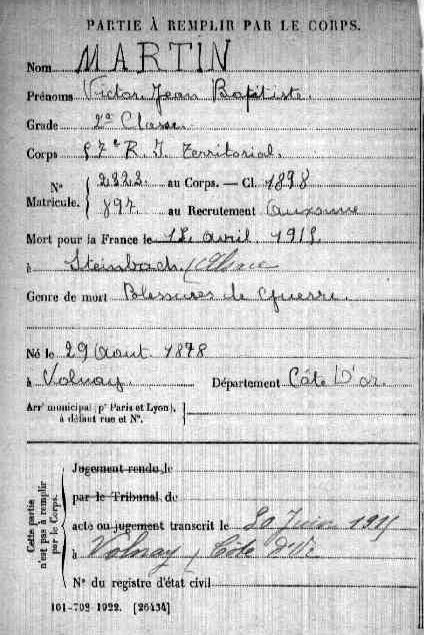 PARTIE À REMPLIR PAR LE CORPS.
Nom MARTIN
Prénoms Victor Jean Baptiste.
Grade 2e Classe.
Corps 57e R. I. Territorial.
N° Matricule. { 2323. au Corps. — Cl. 1898
897. au Recrutement Auxonne
Mort pour la France le 12 avril 1915
à Steinbach (Alsace
Genre de mort Blessures de Guerre.
Né le 29 Aout. 1878
à Volnay. Département Côte D'or.
Arrt municipal (pr Paris et Lyon),
à défaut rue et N°.
Cette partie n'est pas à remplir par le Corps.
Jugement rendu le
par le Tribunal de
acte ou jugement transcrit le 20 Juin 1915
à Volnay (Côte d'Or
N° du registre d'état civil
101-708-1922. [26434]